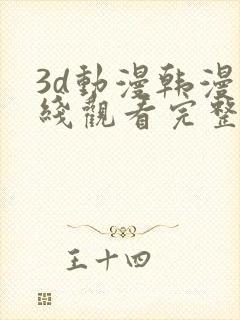 3d動漫韩漫
綫觀看完整
王十四